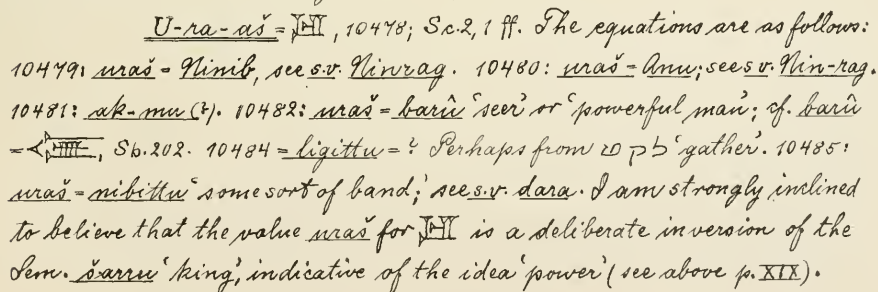 U-ra-aš = 𒅁, 10478; Sc. 2, 1 ff. The equations are as follows:
10479: uraš = Ninib, see s.v. Ninrag. 10480: uraš = Anu; see s.v. Nin-rag.
10481: ak-mu (?). 10482: uraš = barû 'seer' or 'powerful man'; cf. barû
= , Sb. 202. 10484 = ligittu = ? Perhaps from לקט 'gather'. 10485:
uraš = nibittu 'some sort of band;' see s.v. dara. I am strongly inclined
to believe that the value uraš for 𒅁 is a deliberate inversion of the
Sem. šarru 'king', indicative of the idea 'power' (see above p. XIX).